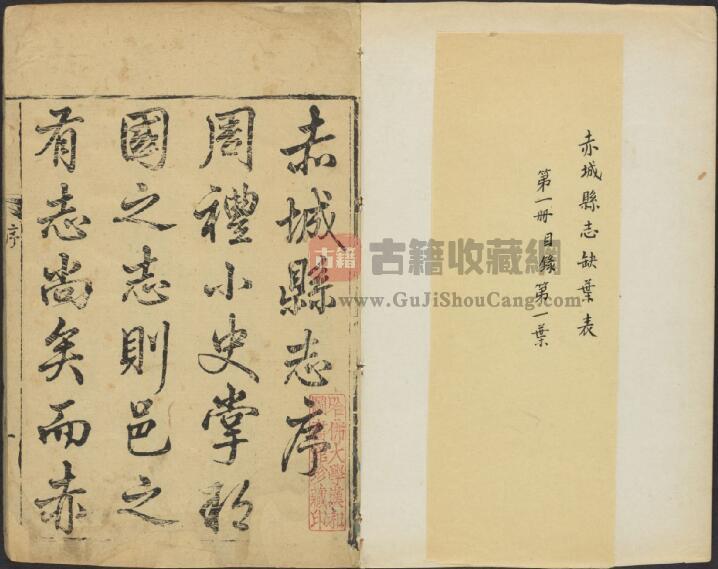 赤城縣志缺葉表
第一册目錄第一葉
赤城縣志序
周禮小史掌邦
國之志則邑之
有志尚矣而赤
序
哈佛大學漢和
圖書館珍藏印
古籍
古籍收藏網
www.GuJiShouCang.com